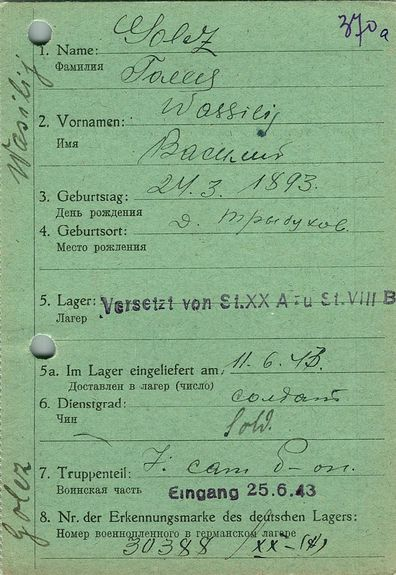 370a
Golez
1. Name:
Фамилия
Голец
Wassilij
2. Vornamen:
Имя
Василий
3. Geburtstag: 24. 3. 1893.
День рождения
4. Geburtsort: д. Трыбухов.
Место рождения
5. Lager: Versetzt von St.XX A zu St.VIII B
Лагер
5a. Im Lager eingeliefert am: 11. 6. 43.
Доставлен в лагер (число)
6. Dienstgrad: солдат
Чин Sold.
7. Truppenteil: сап б-он.
Воинская часть Eingang 25.6.43
8. Nr. der Erkennungsmarke des deutschen Lagers:
Номер военнопленного в германском лагере
30388 / XX-(A)
Golez Wassilij